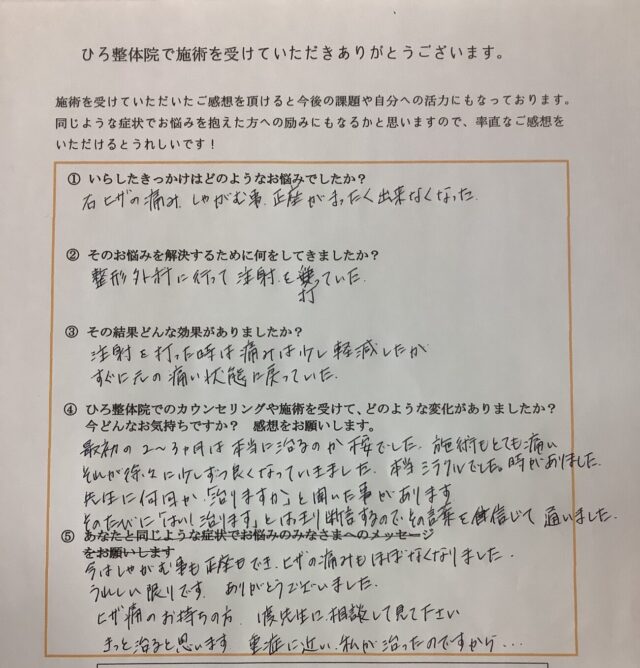 ひろ整体院で施術を受けていただきありがとうございます。
施術を受けていただいたご感想を頂けると今後の課題や自分への活力にもなっております。
同じような症状でお悩みを抱えた方への励みにもなるかと思いますので、率直なご感想を
いただけるとうれしいです！
① いらしたきっかけはどのようなお悩みでしたか？
右ヒザの痛み、しゃがむ事、正座がまったく出来なくなった
② そのお悩みを解決するために何をしてきましたか？
整形外科に行って注射を打っていた。
③ その結果どんな効果がありましたか？
注射を打った時は痛みは少し軽減したが
すぐに元の痛い状態に戻っていた。
④ ひろ整体院でのカウンセリングや施術を受けて、どのような変化がありましたか？
今どんなお気持ちですか？ 感想をお願いします。
最初の2〜3ヶ月は本当に治るのか でした。施術もとても痛い
それが徐々に少しずつ良くなっていきました。本当ミラクルでした。時がありました。
先生に何回か「治りますか」と聞いた事があります
そのたびに「はい！治ります」とはっきり断言するのでその言葉を信じて通いました。
⑤ あなたと同じような症状でお悩みのみなさまへのメッセージ
をお願いします
今はしゃがむ事も正座もでき、ヒザの痛みもほぼなくなりました。
うれしい限りです ありがとうございました。
ヒザ痛のお持ちの方、 先生に相談して見て下さい
きっと治ると思います 重症に近い私が治ったのですから...